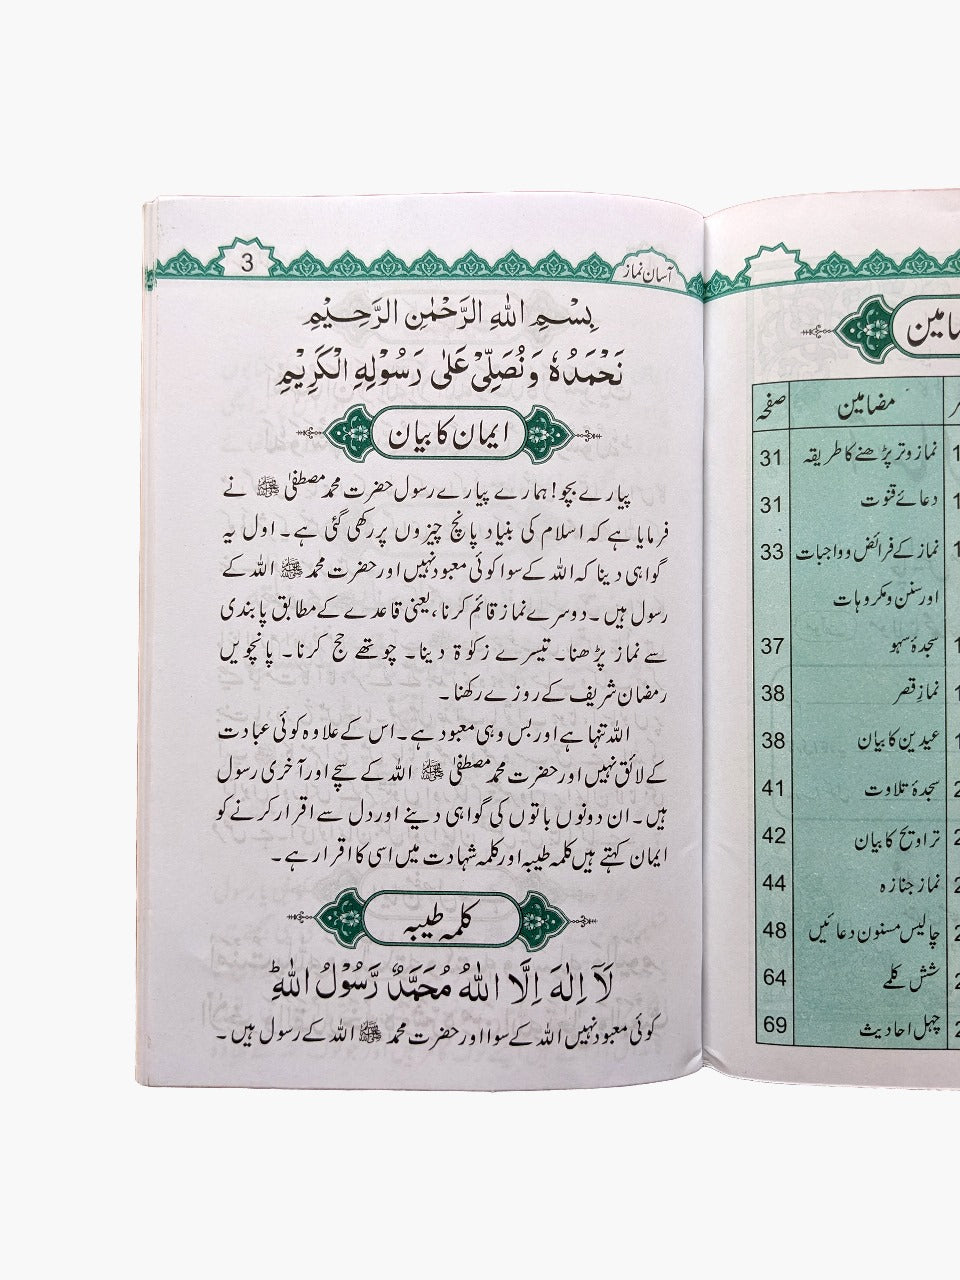 مضامین
مضامین صفحہ
نماز وتر پڑھنے کا طریقہ 31
دعائے قنوت 31
نماز کے فرائض وواجبات 33
اور سنن و مکروہات
سجدۂ سہو 37
نماز قصر 38
عیدین کا بیان 38
سجدۂ تلاوت 41
تراویح کا بیان 42
نماز جنازہ 44
چالیس مسنون دعائیں 48
شش کلمے 64
چہل احادیث 69
آسان نماز 3
بِسْمِ اللهِ الرَّحْمٰنِ الرَّحِيْمِ
نَحْمَدُهٗ وَنُصَلِّىْ عَلٰى رَسُوْلِهِ الْكَرِيْمِ
ایمان کا بیان
پیارے بچو! ہمارے پیارے رسول حضرت محمد مصطفیٰ ﷺ نے
فرمایا ہے کہ اسلام کی بنیاد پانچ چیزوں پر رکھی گئی ہے۔ اول یہ
گواہی دینا کہ اللہ کے سوا کوئی معبود نہیں اور حضرت محمد ﷺ اللہ کے
رسول ہیں۔ دوسرے نماز قائم کرنا، یعنی قاعدے کے مطابق پابندی
سے نماز پڑھنا۔ تیسرے زکوٰۃ دینا۔ چوتھے حج کرنا۔ پانچویں
رمضان شریف کے روزے رکھنا۔
اللہ تنہا ہے اور بس وہی معبود ہے۔ اس کے علاوہ کوئی عبادت
کے لائق نہیں اور حضرت محمد مصطفیٰ ﷺ اللہ کے سچے اور آخری رسول
ہیں۔ ان دونوں باتوں کی گواہی دینے اور دل سے اقرار کرنے کو
ایمان کہتے ہیں کلمہ طیبہ اور کلمہ شہادت میں اسی کا اقرار ہے۔
کلمہ طیبہ
لَآ اِلٰهَ اِلَّا اللهُ مُحَمَّدٌ رَّسُوْلُ اللهِ ؕ
کوئی معبود نہیں اللہ کے سوا اور حضرت محمد ﷺ اللہ کے رسول ہیں۔